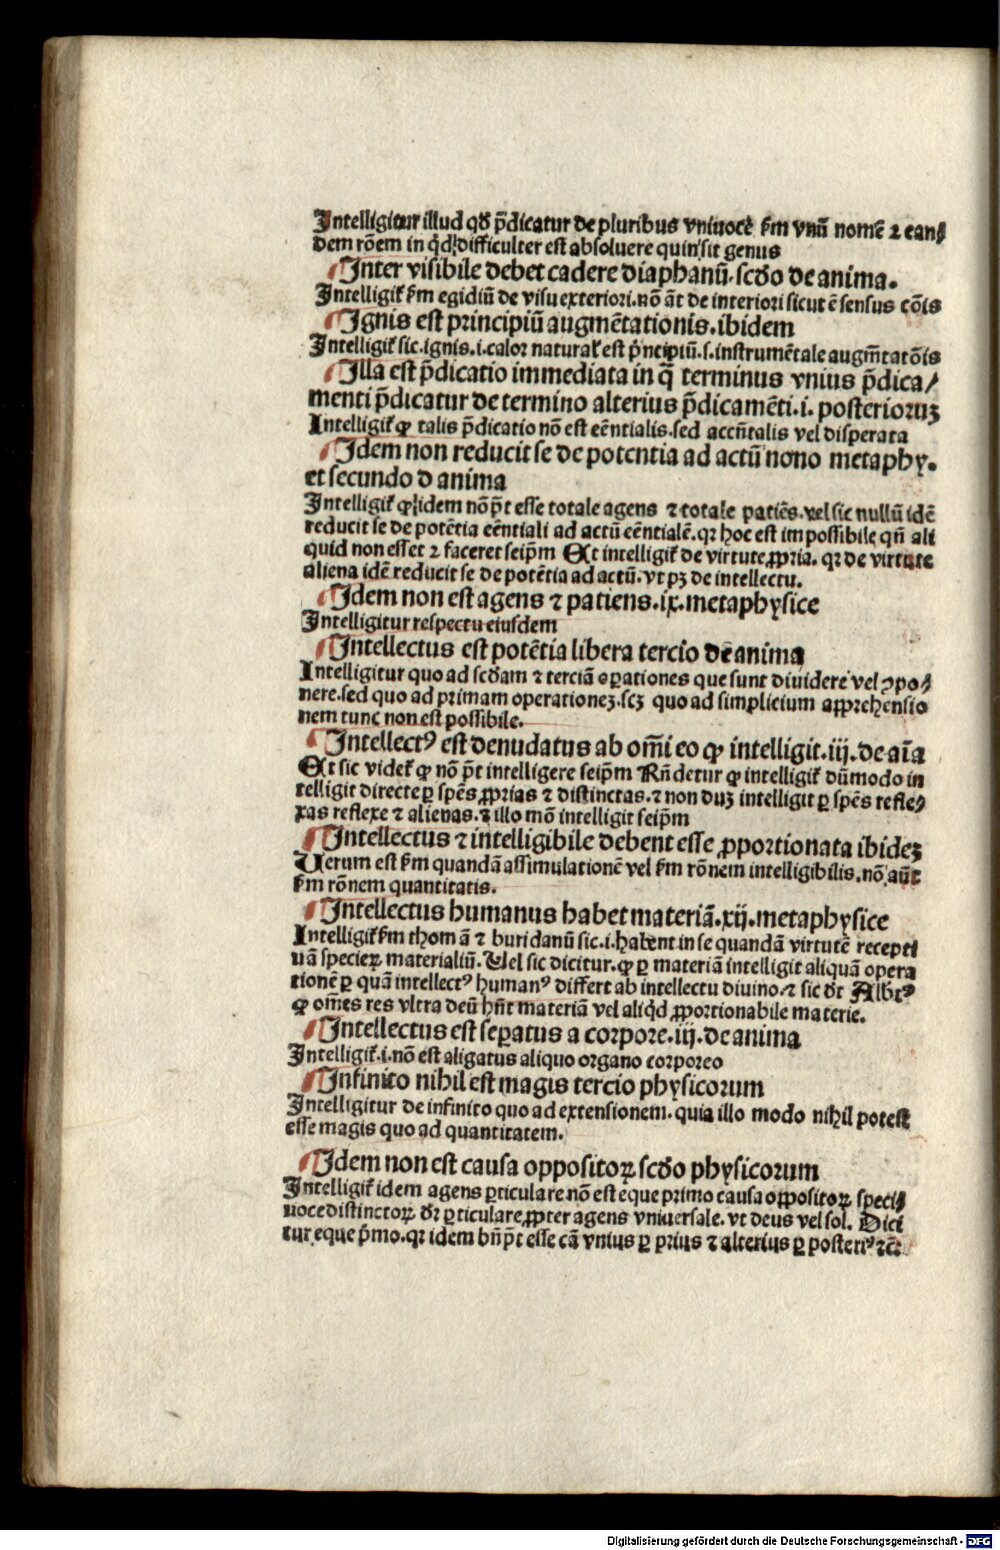 Intelligitur illud qð p̄dicatur de pluribus vniuoce ẜm vnū nomē ⁊ ean⸗
dem rōem in q̇d difficulter est absoluere quin sit genus
¶ Inter visibile debet cadere diaphanū. scðo de anima.
Intelligiẗ ẜm egidiū de visu exteriori. nō āt de interiori sicut ē sensus cōis
¶ Ignis est principiū augmētationis. ibidem
Intelligiẗ sic. ignis .i. calor naturał est p̄ncipiū .s. instrumētale augm̄tatōis
¶ Illa est p̄dicatio immediata in q̄ terminus vnius p̄dica⸗
menti p̄dicatur de termino alterius p̄dicamēti .i. posterioruꝫ
Intelligiẗ ꝙ talis p̄dicatio nō est eēntialis. sed accn̄talis vel disperata
¶ Idem non reducit se de potentia ad actū nono metaphy.
et secundo d anima
Intelligiẗ ꝙ idem nō pt̄ esse totale agens ⁊ totale patiēs. vel sic nullū idē
reducit se de potētia eēntiali ad actū eēntialē. qꝛ hoc est impossibile qn̄ ali
quid non esset ⁊ faceret seip̄m Et intelligiẗ de virtute ꝓpria. qꝛ de virtute
aliena idē reducit se de potētia ad actū. vt pꝫ de intellectu.
¶ Idem non est agens ⁊ patiens .ix. metaphysice
Intelligitur respectu eiusdem
¶ Intellectus est potētia libera tercio de anima
Intelligitur quo ad scðam ⁊ terciā oꝑationes que sunt diuidere vel ꝯpo⸗
nere. sed quo ad primam operationeꝫ. scꝫ quo ad simplicium apprehensio
nem tunc non est possibile.
¶ Intellectꝰ est denudatus ab om̄i eo ꝙ intelligit .iij. de aīa
Et sic videẗ ꝙ nō pt̄ intelligere seip̄m Rn̄detur ꝙ intelligiẗ dūmodo in
telligit directe ꝑ spēs ꝓprias ⁊ distinctas. ⁊ non duꝫ intelligit ꝑ spēs refle⸗
xas reflexe ⁊ alienas. ⁊ illo mō intelligit seip̄m
¶ Intellectus ⁊ intelligibile debent esse ꝓportionata ibideꝫ
Uerum est ẜm quandā assimulationē vel ẜm rōnem intelligibilis. nō aūt
ẜm rōnem quantitatis.
¶ Intellectus humanus habet materiā .xij. metaphysice
Intelligiẗ ẜm thomā ⁊ buridanū sic .i. habent in se quandā virtutē recepti
uā specieꝝ materialiū. Uel sic dicitur. ꝙ ꝑ materiā intelligit aliquā opera
tionē ꝑ quā intellectꝰ humanꝰ differt ab intellectu diuino. ⁊ sic dr̄t Albertꝰ
ꝙ om̄es res vltra deū hn̄t materiā vel aliq̇d ꝓportionabile materie.
¶ Intellectus est seꝑatus a corpore .iij. de anima
Intelligiẗ .i. nō est aligatus aliquo organo corporeo
¶ Infinito nihil est magis tercio physicorum
Intelligitur de infinito quo ad extensionem. quia illo modo nihil potest
esse magis quo ad quantitatem.
¶ Idem non est causa oppositoꝝ scðo physicorum
Intelligiẗ idem agens ꝑticulare nō est eque primo causa oppositoꝝ speci⸗
uoce distinctoꝝ dr̄ ꝑticulare ꝓpter agens vniuersale. vt deus vel sol. Dici
tur eque p̄mo. qꝛ idem bn̄ pt̄ esse cā vnius ꝑ prius ⁊ alterius ꝑ posteriꝰ ⁊c̄.
Digitalisierung gefördert durch die Deutsche Forschungsgemeinschaft - DFG